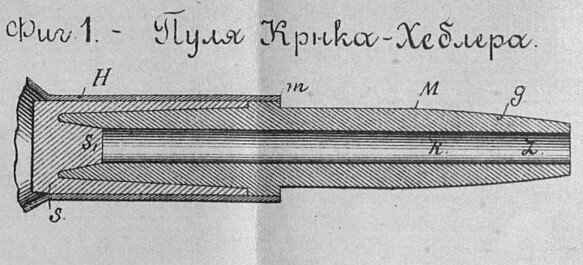 Фиг. 1. - Пуля Крнка-Хеблера.
H m M g
s₁ k z
s.